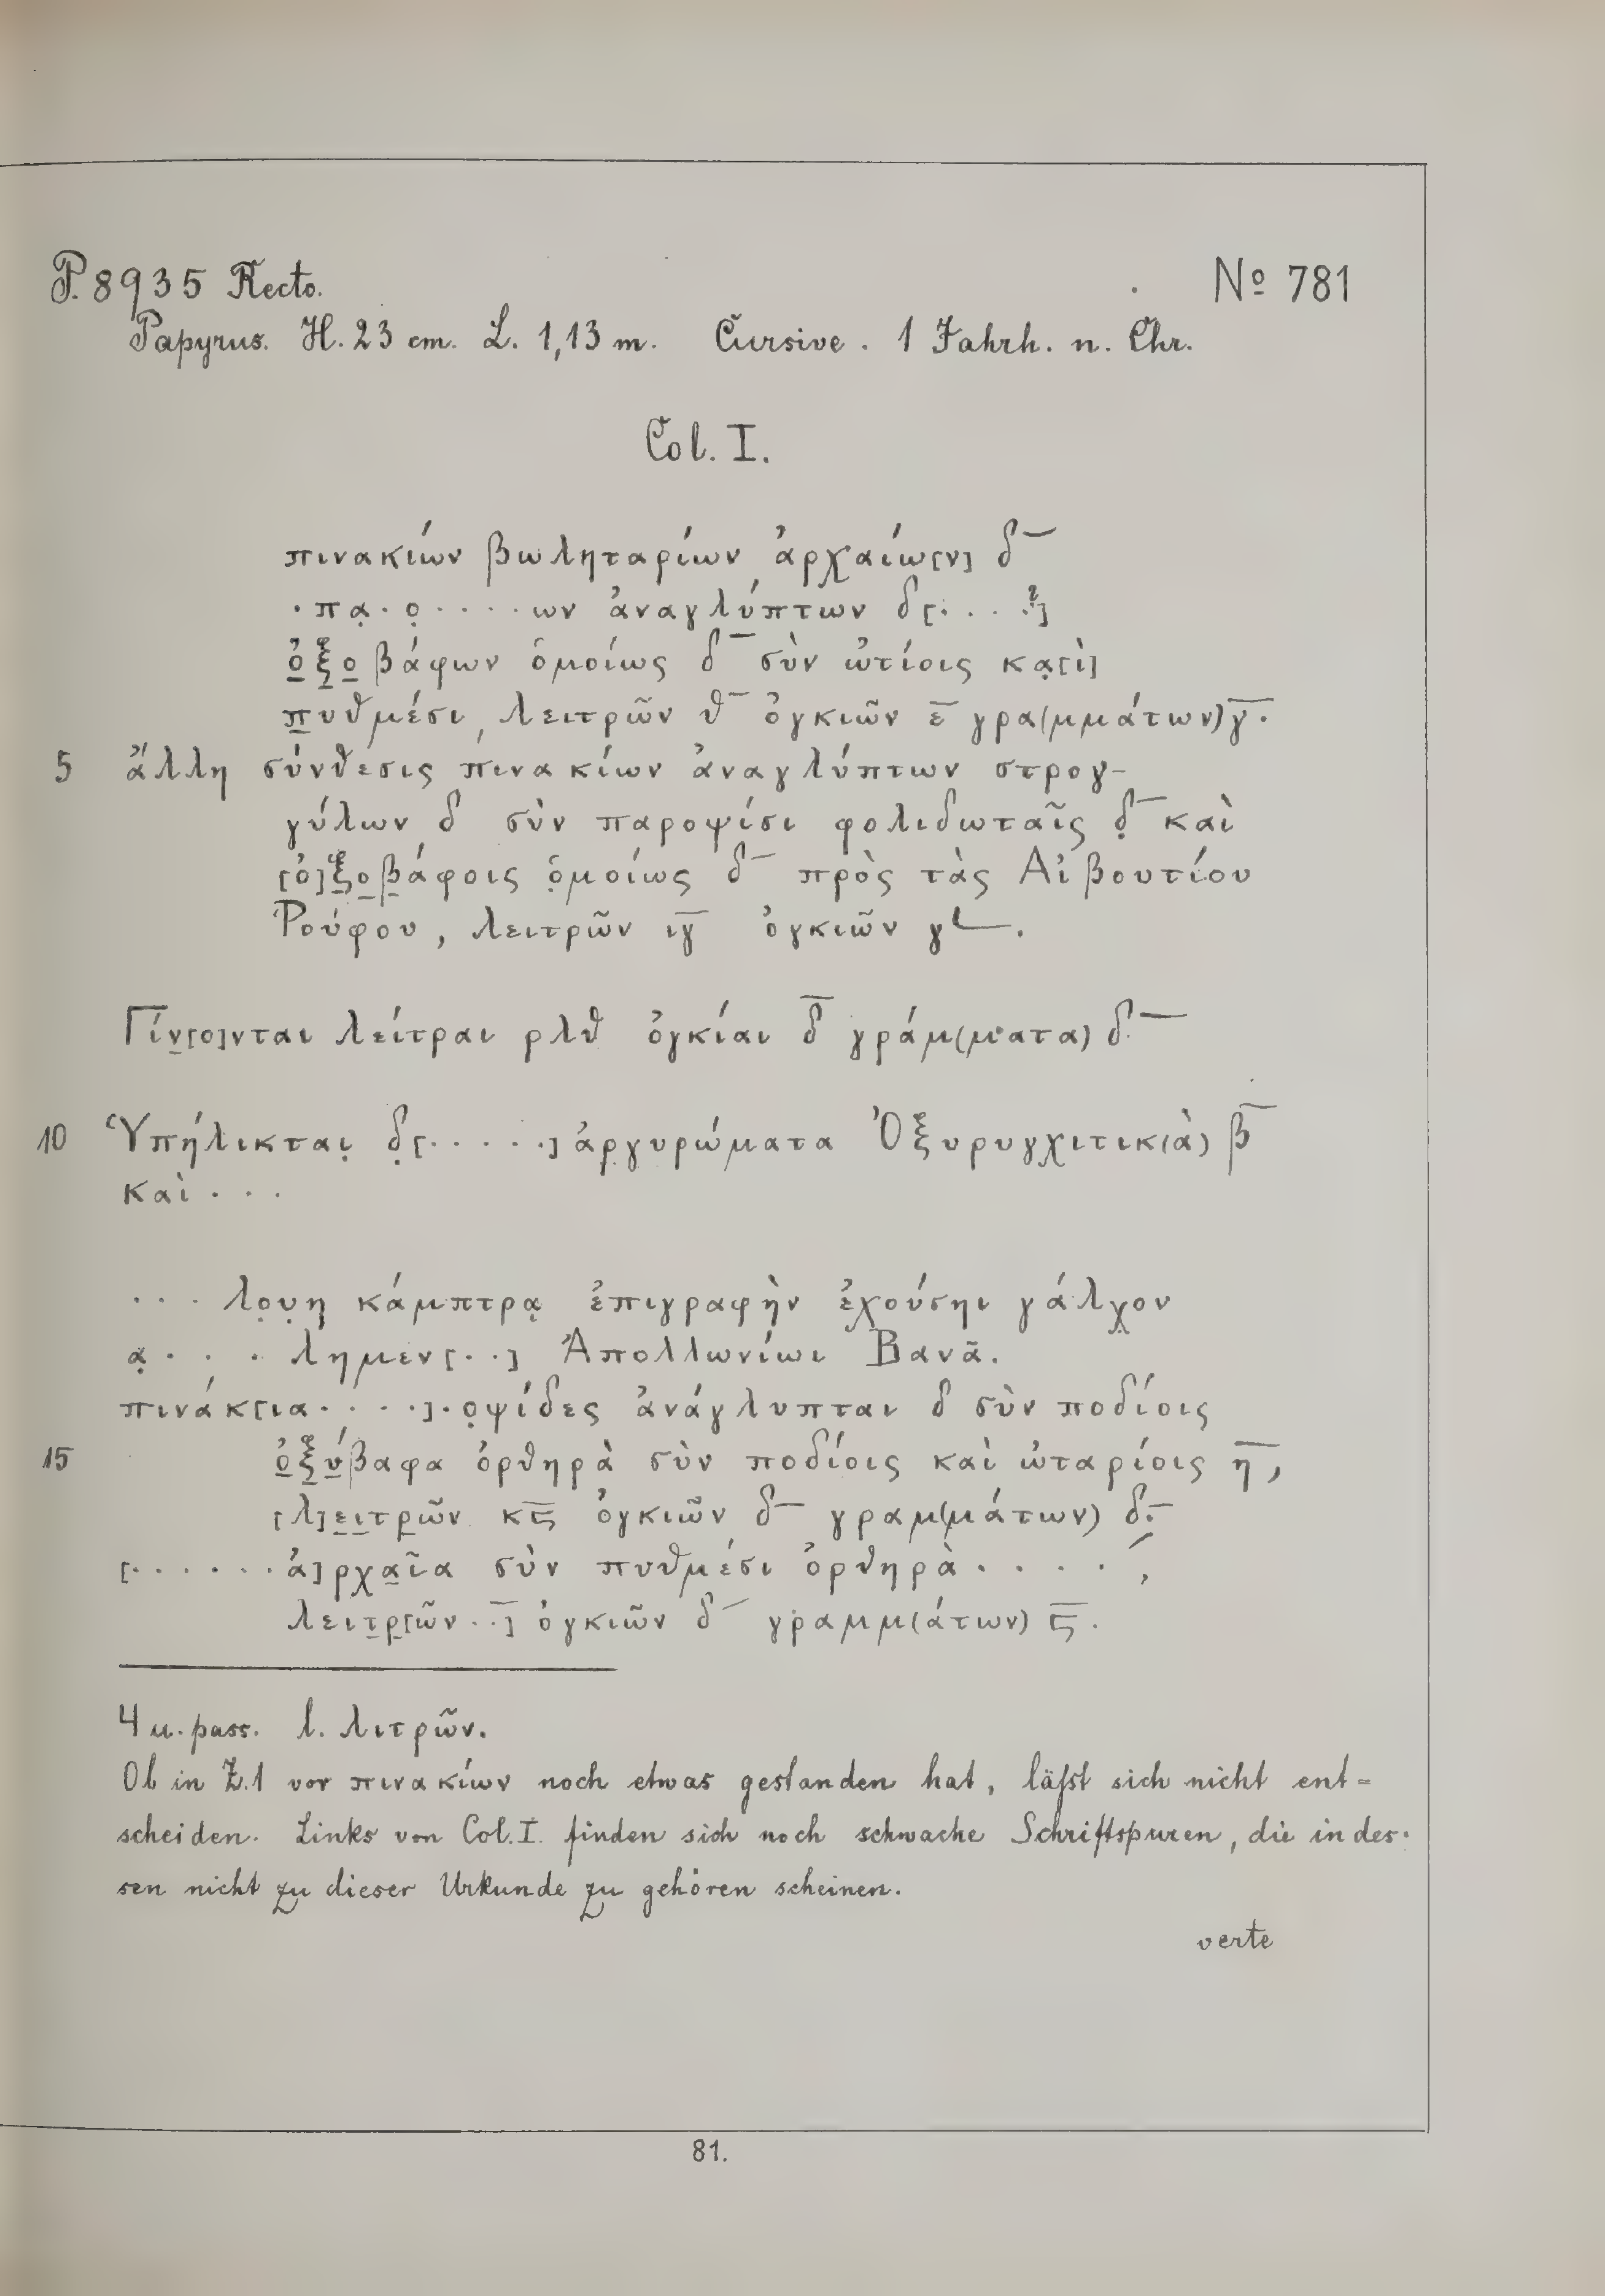 P. 8935 Recto. Nº 781
Papyrus. H. 23 cm. L. 1,13 m. Cursive. 1 Jahrh. n. Chr.
Col. I.
πινακίων βωληταρίων ἀρχαίω[ν] δ̅
·πα̣·ο̣·····ων ἀναγλύπτων δ[·...?]
ὀ̲ξ̲ο̲βάφων ὁμοίως δ̅ σὺν ὠτίοις κα̣[ὶ]
π̲υθμέσι, λειτρῶν θ̅ ὀγκιῶν ε̅ γρα(μμάτων) γ̅.
5 ἄλλη σύνθεσις πινακίων ἀναγλύπτων στρογ-
γύλων δ σὺν παροψίσι φολιδωταῖς δ̣̅ καὶ
[ὀ]ξ̲ο̲β̲άφοις ὁ̣μοίως δ̅ πρὸς τὰς Αἰβουτίου
Ῥούφου, λειτρῶν ιγ̅ ὀγκιῶν γ𐅵.
Γίν̲[ο]νται λείτραι ρλθ ὀγκίαι δ̅ γράμ(ματα) δ̅
10 Ὑπήλικται̣ δ̣[·····] ἀρ̣γυρώματα Ὀξυρυγχιτικ(ὰ) β̅
καὶ ···
··· λο̣υ̣η κάμπτρα̣ ἐπιγραφὴν ἐχούσηι γάλχ̣ον
α̣··· λημεν[··] Ἀπολλωνίωι Βανᾶ.
πινάκ[ια····]·ο̣ψίδες ἀνάγλυπται δ σὺν ποδίοις
15 ὀ̲ξ̲ύ̲βαφα ὀρθηρὰ σὺν ποδίοις καὶ ὠταρίοις η̅,
[λ]ε̲ι̲τρ̲ῶν κϛ̅ ὀγκιῶν δ̅ γραμ(μάτων) δ̅.
[······ἀ]ρχα̲ῖα σὺν πυθμέσι ὀρθηρὰ ····,
λειτ̲ρ̲[ῶν ··] ὀγκιῶν δ̅ γραμμ(άτων) ϛ̅.
4 u. pass. l. λιτρῶν.
Ob in Z. 1 vor πινακίων noch etwas gestanden hat, läſst sich nicht ent=
scheiden. Links von Col. I. finden sich noch schwache Schriftspuren, die indes-
sen nicht zu dieser Urkunde zu gehören scheinen.
verte
81.